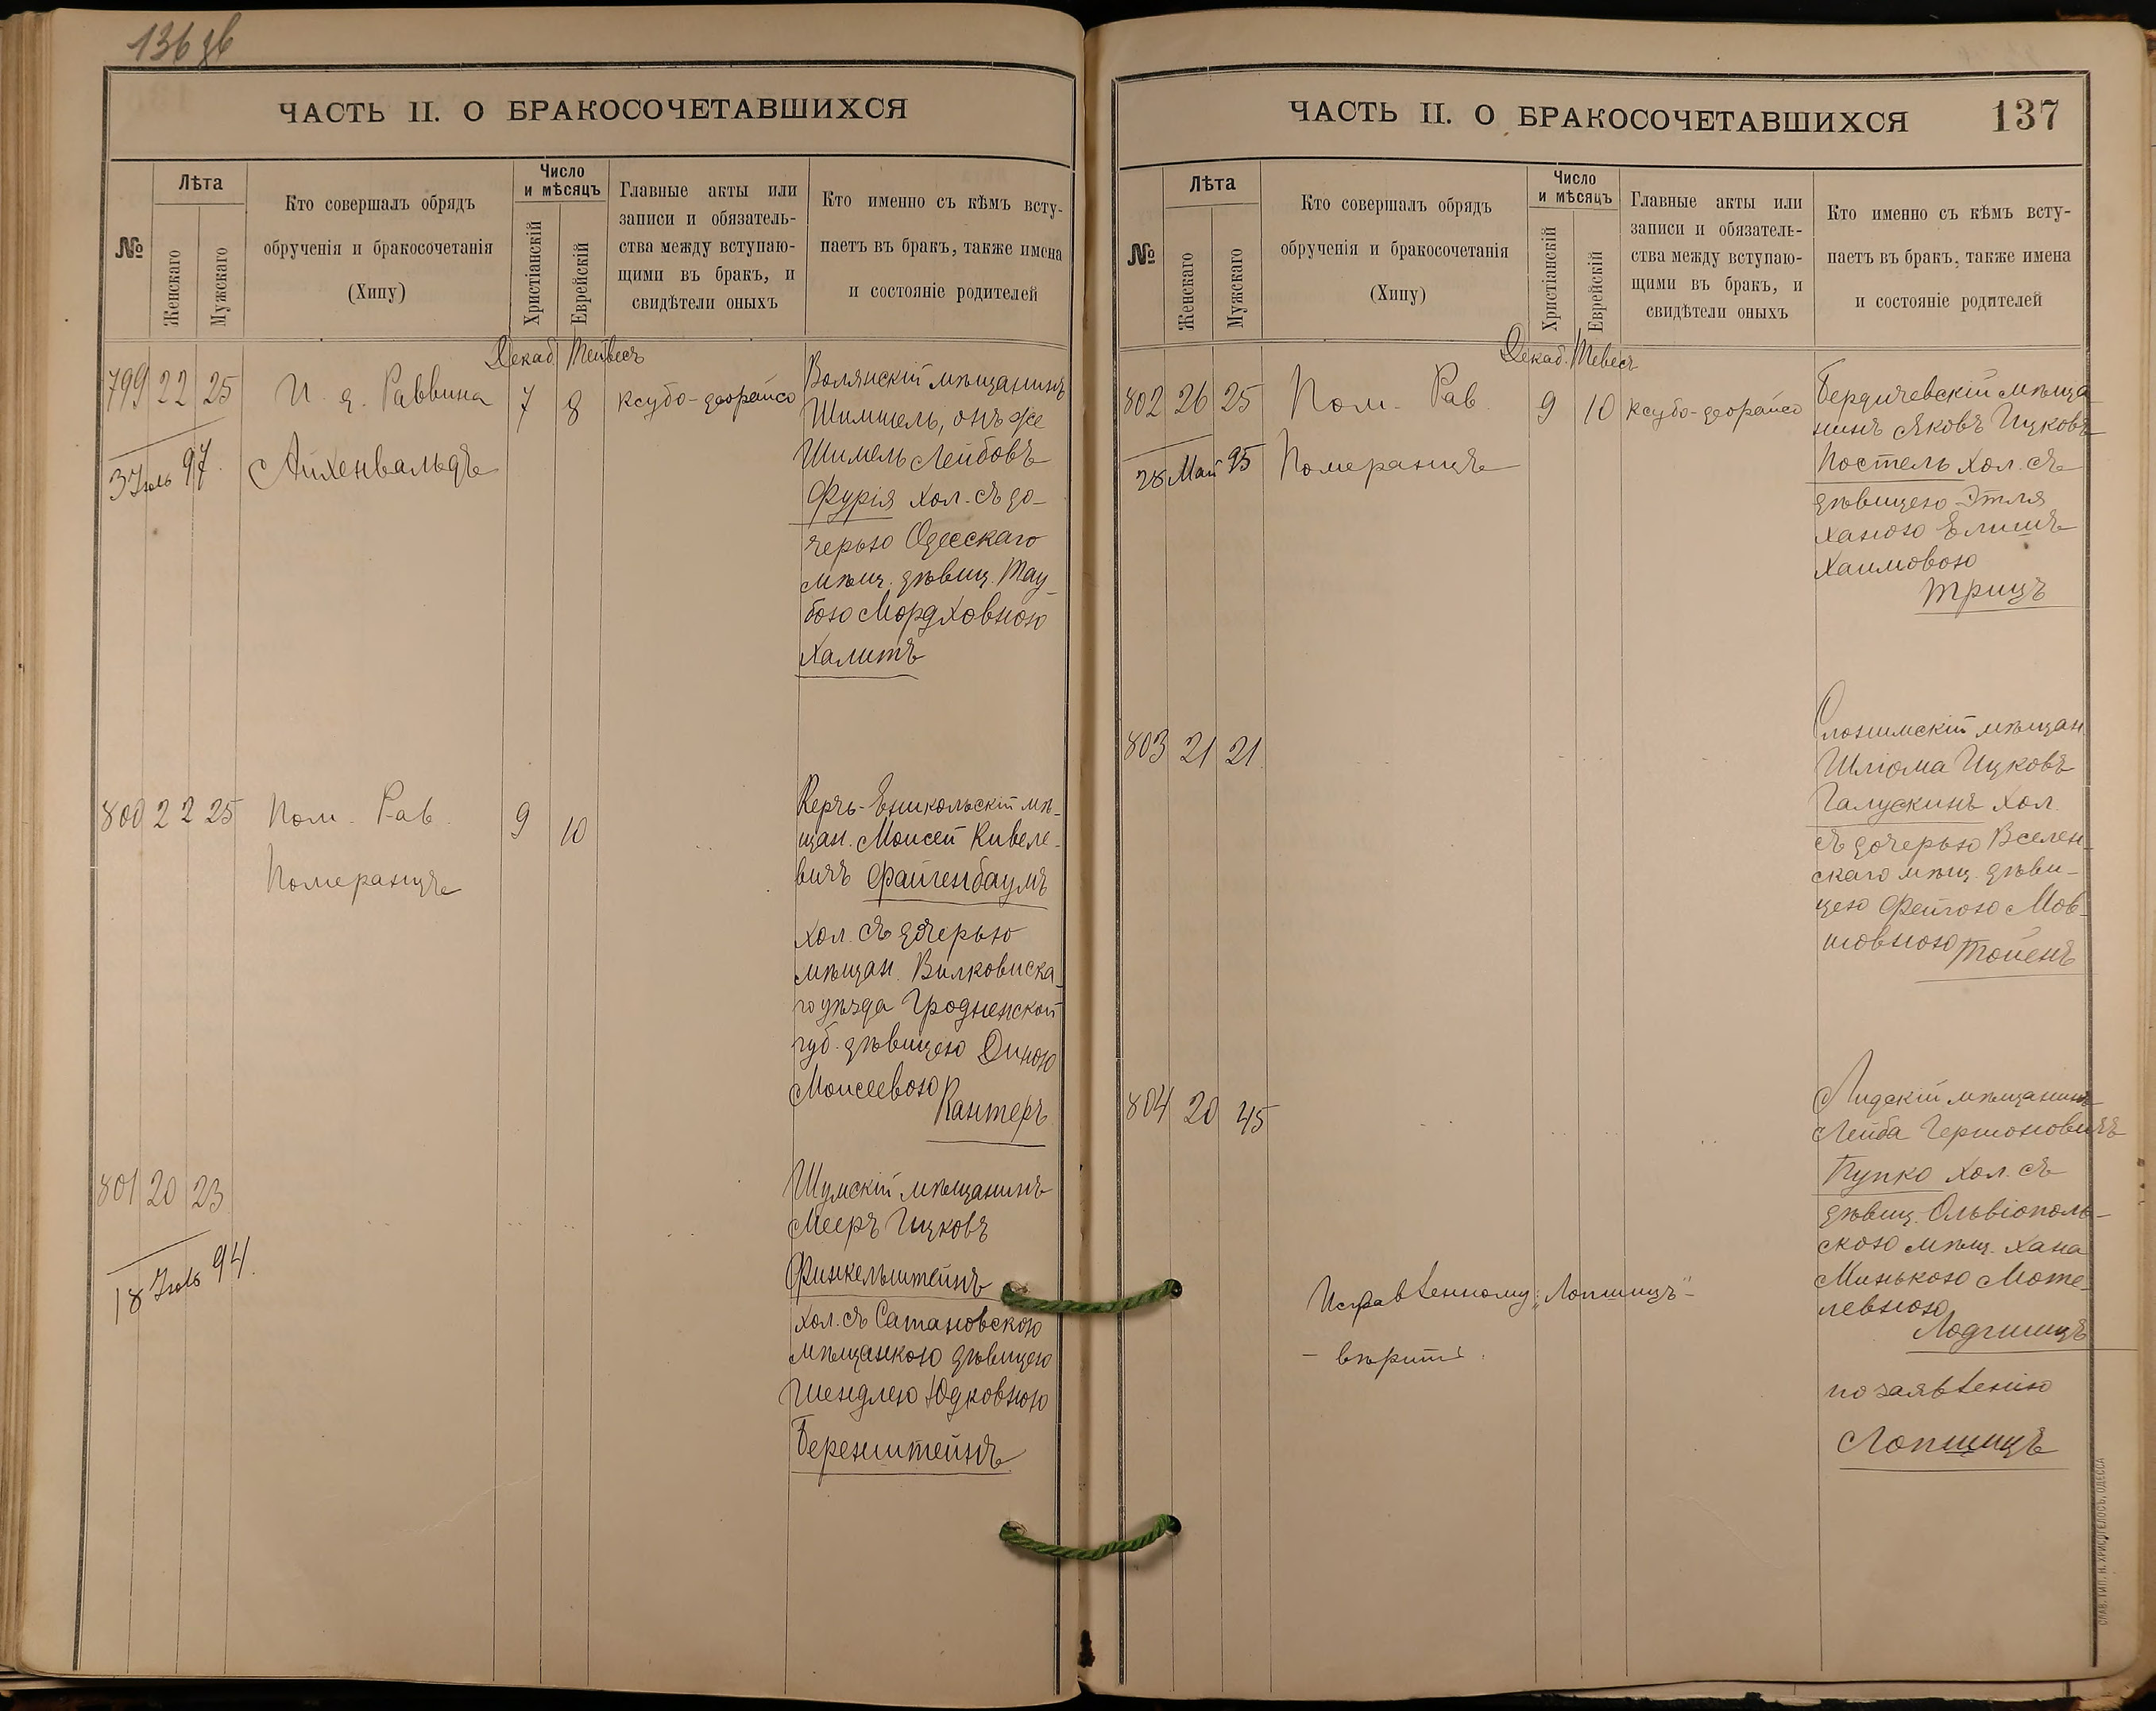 136 зв
ЧАСТЬ II. О БРАКОСОЧЕТАВШИХСЯ
№
Лѣта
Женскаго
Мужскаго
Кто совершалъ обрядъ
обрученія и бракосочетанія
(Хипу)
Число
и мѣсяцъ
Христіанскій
Еврейскій
Главные акты или
записи и обязатель-
ства между вступаю-
щими въ бракъ, и
свидѣтели оныхъ
Кто именно съ кѣмъ всту-
паетъ въ бракъ, также имена
и состояніе родителей
Декаб. Тейвесъ
799 22 25
И. д. Раввина
Айхенвальдъ
7 8
ксубо-деорайсо
3 Іюль 97.
Волянскій мѣщанинъ
Шимшель, онъ же
Шимель Лейбовъ
Фурія хол. съ до-
черью Одесскаго
мѣщ. дѣвиц. Тау-
бою Мордховною
Халитъ
800 22 25
Пом. Рав.
Померанцъ
9 10
Керчь-Еникольскій мѣ-
щан. Моисей Кивеле-
вичъ Файгенбаумъ
хол. съ дочерью
мѣщан. Вилковиска-
го уѣзда Гродненской
губ. дѣвицею Диною
Моисеевою
Кантеръ
801 20 23
18 Іюль 94.
Шумскій мѣщанинъ
Мееръ Ицковъ
Финкельштейнъ
хол. съ Сатановскою
мѣщанкою дѣвицею
Шендлею Юдковною
Беренштейнъ
ЧАСТЬ II. О БРАКОСОЧЕТАВШИХСЯ
137
№
Лѣта
Женскаго
Мужскаго
Кто совершалъ обрядъ
обрученія и бракосочетанія
(Хипу)
Число
и мѣсяцъ
Христіанскій
Еврейскій
Главные акты или
записи и обязатель-
ства между вступаю-
щими въ бракъ, и
свидѣтели оныхъ
Кто именно съ кѣмъ всту-
паетъ въ бракъ, также имена
и состояніе родителей
Декаб. Тевесъ
802 26 25
Пом. Рав.
Померанцъ
9 10
ксубо-деорайсо
28 Май 95
Бердичевскій мѣща-
нинъ Яковъ Ицковъ
Постель хол. съ
дѣвицею Этля
Ханою Елишъ
Хаимовою
Трицъ
803 21 21
Слонимскій мѣщан.
Шлiома Ицковъ
Галускинъ хол.
съ дочерью Вселен-
скаго мѣщ. дѣви-
цею Фейгою Мов-
шовною Тойенъ
804 20 45
Лидскій мѣщанинъ
Лейба Гершоновичъ
Пупко хол. съ
дѣвиц. Ольвіополь-
скою мѣщ. Хана
Минькою Моте-
левною
Лодгишцъ
по заявленію
Лопшицъ
Исправленному: „Лопшицъ"-
- вѣрить.
СЛАВ. ТИП. Н. ХРИСОГЕЛОСЪ, ОДЕССА